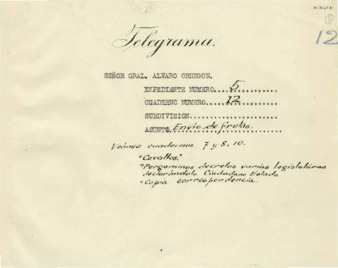 12
Telegrama.
SEÑOR GRAL. ALVARO OBREGON.
EXPEDIENTE NUMERO 5
CUADERNO NUMERO 12
SUBDIVISION
ASUNTO Envio de frutas.
Véanse cuadernos 7 y 8. 10.
"Cevallos."
"Pergaminos decretos varias legislaturas
declarándole Ciudadano Estado
"Copia correspondencia.